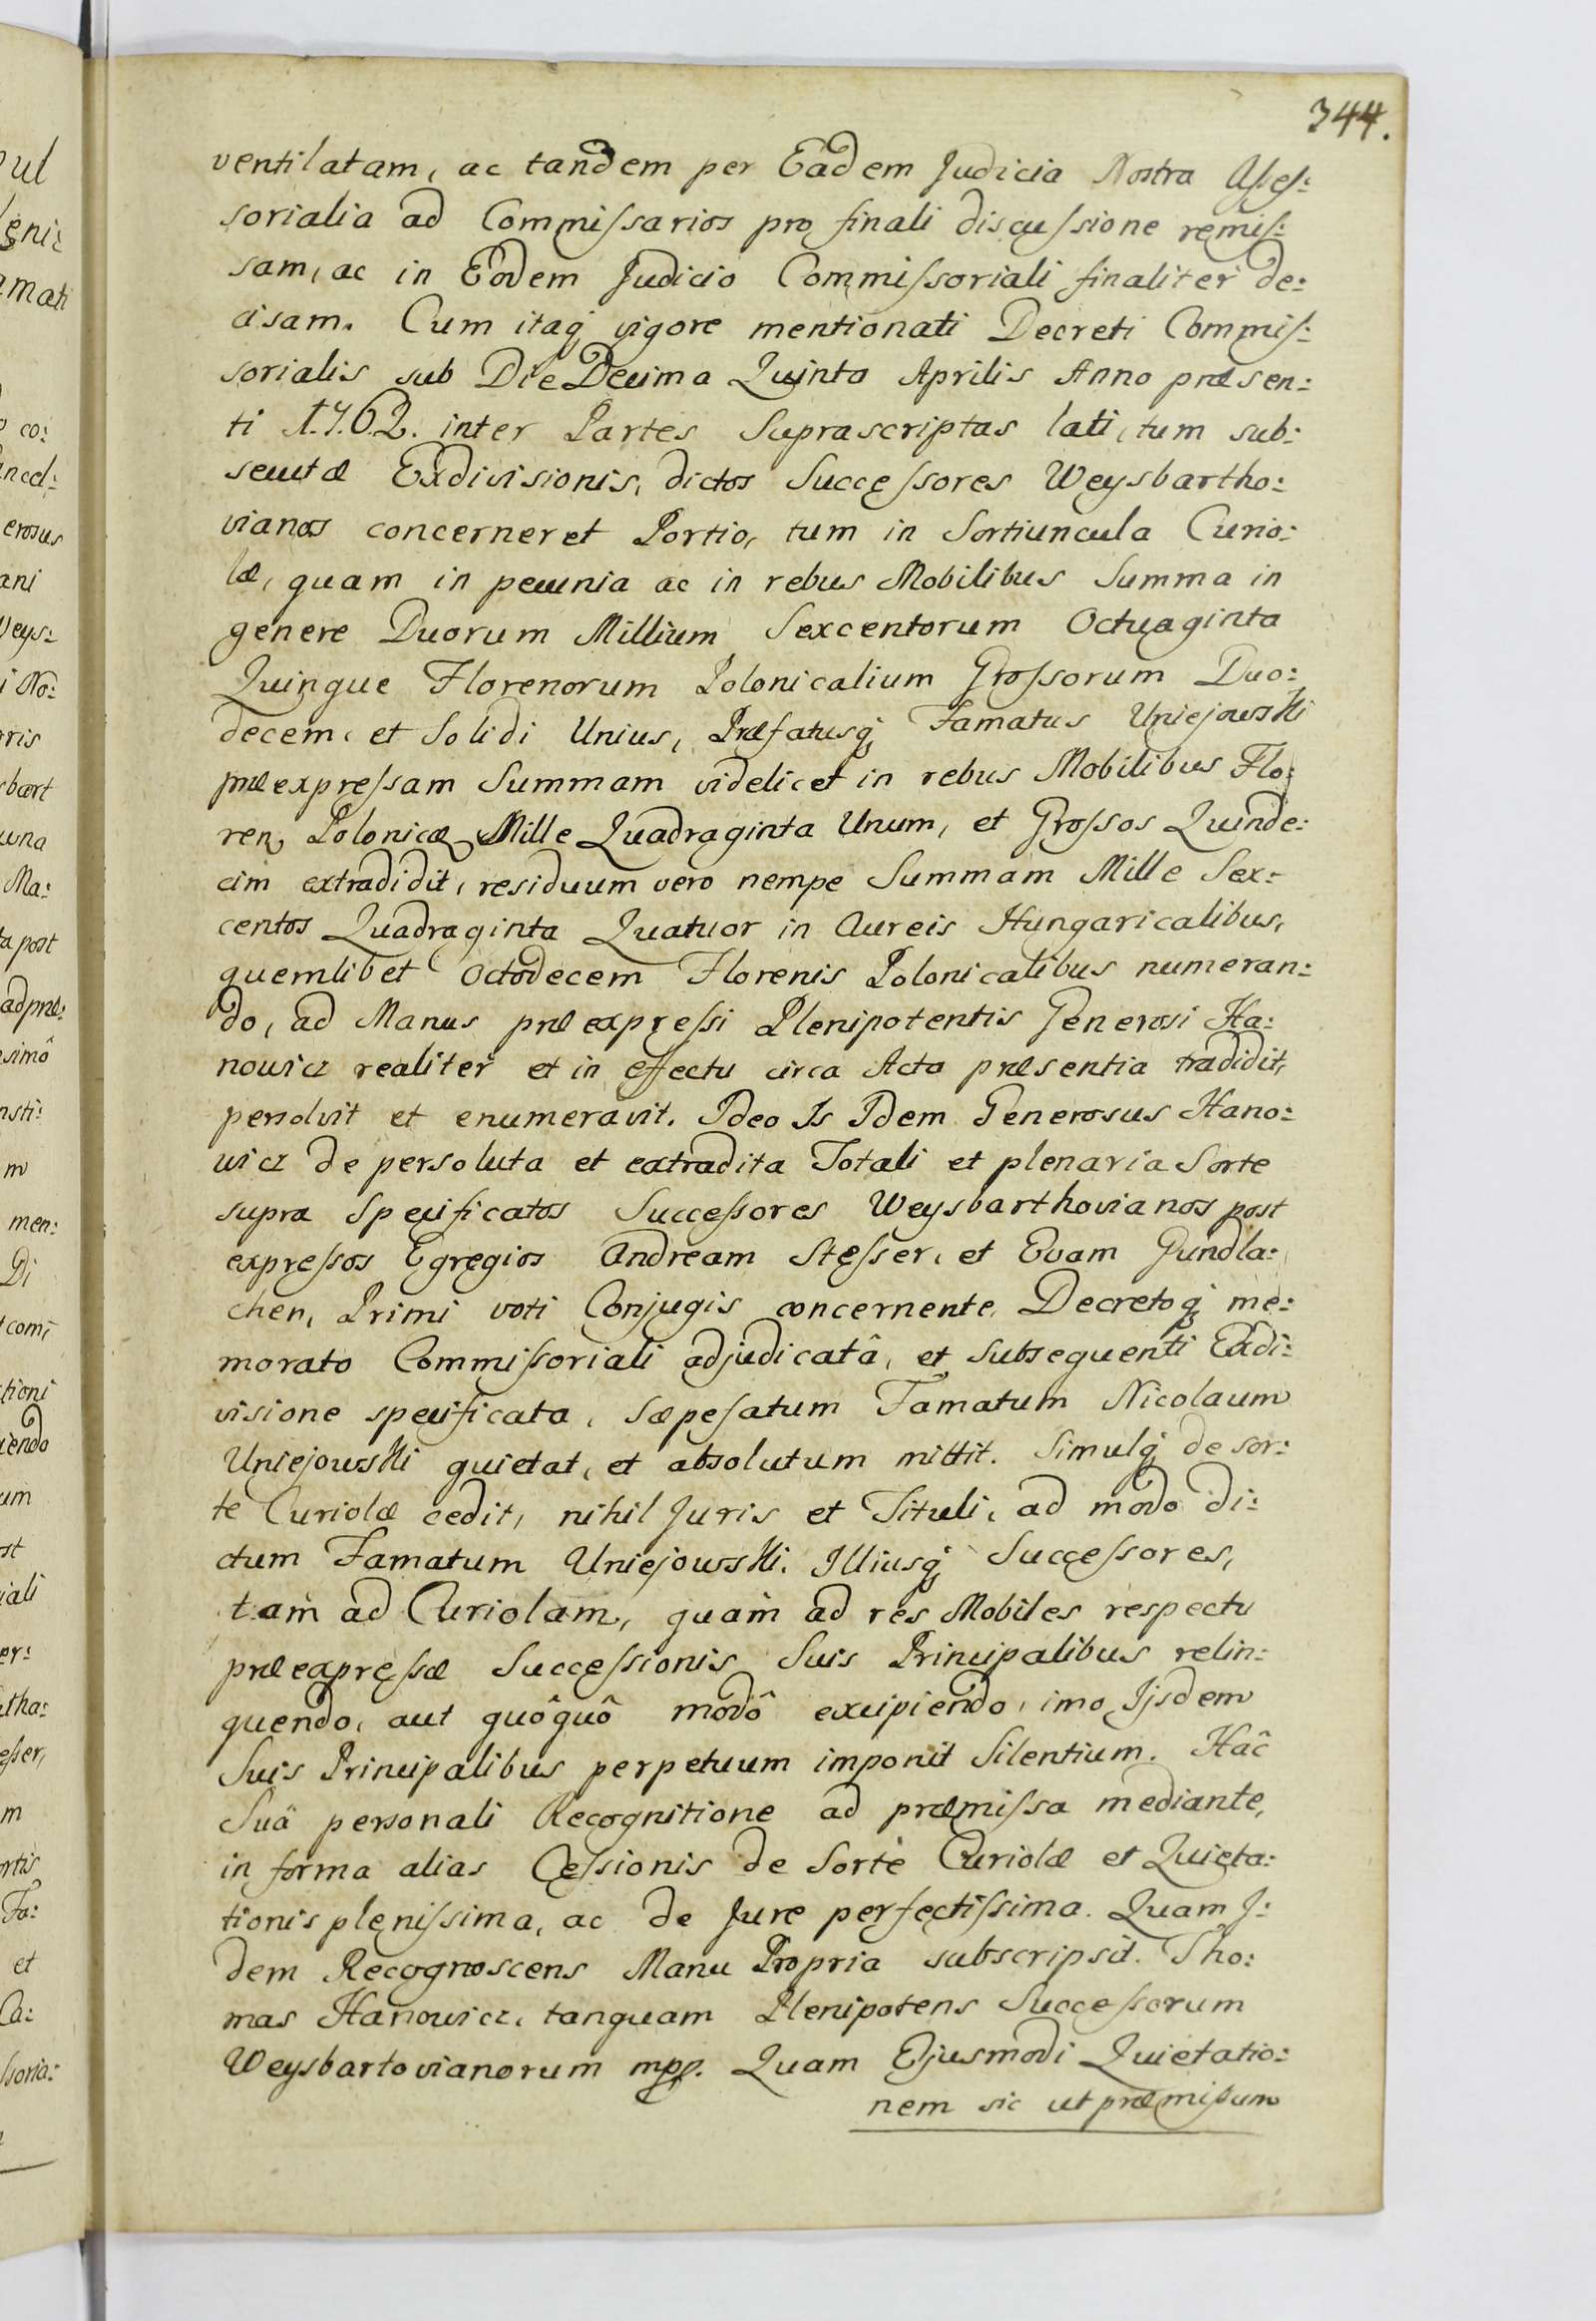 344.
ventilatam, ac tandem per Eadem Judicia Nostra Aſseſ:
sorialia ad Commiſsarios pro finali discuſsione remiſ:
sam, ac in Eodem Judicio Commiſsoriali finaliter de:
cisam. Cum itaq́ vigore mentionati Decreti Commiſ:
sorialis sub Die Decima Quinta Aprilis Anno præsen:
ti 1762. inter Partes Suprascriptas lati, tum sub:
secutæ Exdivisionis, dictos Succeſsores Weysbartho:
vianos concerneret Portio, tum in Sortiuncula Curio:
læ, quam in pecunia ac in rebus Mobilibus Summa in
genere Duorum Millium Sexcentorum Octuaginta
Quinque Florenorum Polonicalium Groſsorum Duo:
decem, et Solidi Unius, Præfatusq́ Famatus Uniejowski
præexpreſsam Summam videlicet in rebus Mobilibus Flo:
ren Polonica Mille Quadraginta Unum, et Groſsos Quinde:
cim extradidit, residuum vero nempe Summam Mille Sex:
centos Quadraginta Quatuor in Aureis Hungaricalibus,
quemlibet Octodecem Florenis Polonicalibus numeran:
do, ad Manus præexpreſsi Plenipotentis Generosi Ha:
nowicz realiter et in effectu circa Acta præsentia tradidit,
persolvit et enumeravit. Ideo Is Idem Generosus Hano:
wicz de persoluta et extradita Totali et plenaria Sorte
supra Specificatos Succeſsores Weysbarthovianos post
expreſsos Egregios Andream Steſser, et Evam Gundla:
chen, Primi voti Conjugis concernente, Decretoq́ me:
morato Commiſsoriali adjudicatâ, et Subsequenti Exdi:
visione specificata, Sæpefatum Famatum Nicolaum
Uniejowski quietat, et absolutum mittit. Simulq́ de sor:
te Curiolæ cedit, nihil Juris et Tituli, ad modo di:
ctum Famatum Uniejowski. Illiusq́ Succeſsores,
tam ad Curiolam, quam ad res Mobiles respectu
præexpreſsæ Succeſsionis Suis Principalibus relin:
quendo, aut quôquô modô excipiendo, imo Ijsdem
Suis Principalibus perpetuum imponit Silentium. Hâc
Suâ personali Recognitione ad præmiſsa mediante,
in forma alias Ceſsionis de Sorte Curiolæ et Quieta:
tionis pleniſsima, ac de Jure perfectiſsima. Quam I:
dem Recognoscens Manu Propria subscripsit. Tho:
mas Hanowicz, tanquam Plenipotens Succeſsorum
Weysbartovianorum mpp. Quam Ejusmodi Quietatio:
nem sic ut præmiſsum